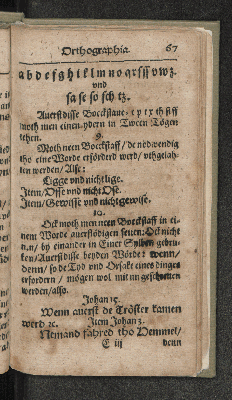 Orthographia. 67
a b c d e f g h i k l m n o q r s ſ ſſ v w ʒ.
vnd
ſa ſe ſo ſch tz.
Auerſt diſſe Boeckſtaue: t p t x th ſt ff
moth men einen ydern in Tween Tögen
tehen.
9.
Moth neen Boeckſtaff / de nodwendig
tho eine Worde erfordert werd / vthgelah-
ten werden / Alſe:
Ligge vnd nicht lige.
Item / Oſſe vnd nicht Oſe.
Item / Gewiſſe vnd nicht gewiſe.
10.
Ock moth men neen Boeckſtaff in ei-
nem Worde auerflödigen ſetten: Ock nicht
n.n / by einander in Einer Sylben gebru-
ken / Auerſt diſſe beyden Wörde: wenn /
denn / ſo de Tyd vnd Orſake eines dinges
erfordern / mögen wol mit nn geſchreuen
werden / alſo.
Johan 15.
Wenn auerſt de Tröſter kamen
werd ꝛc. Item Johan 3.
Nemand fahred tho Hemmel /
E iij denn